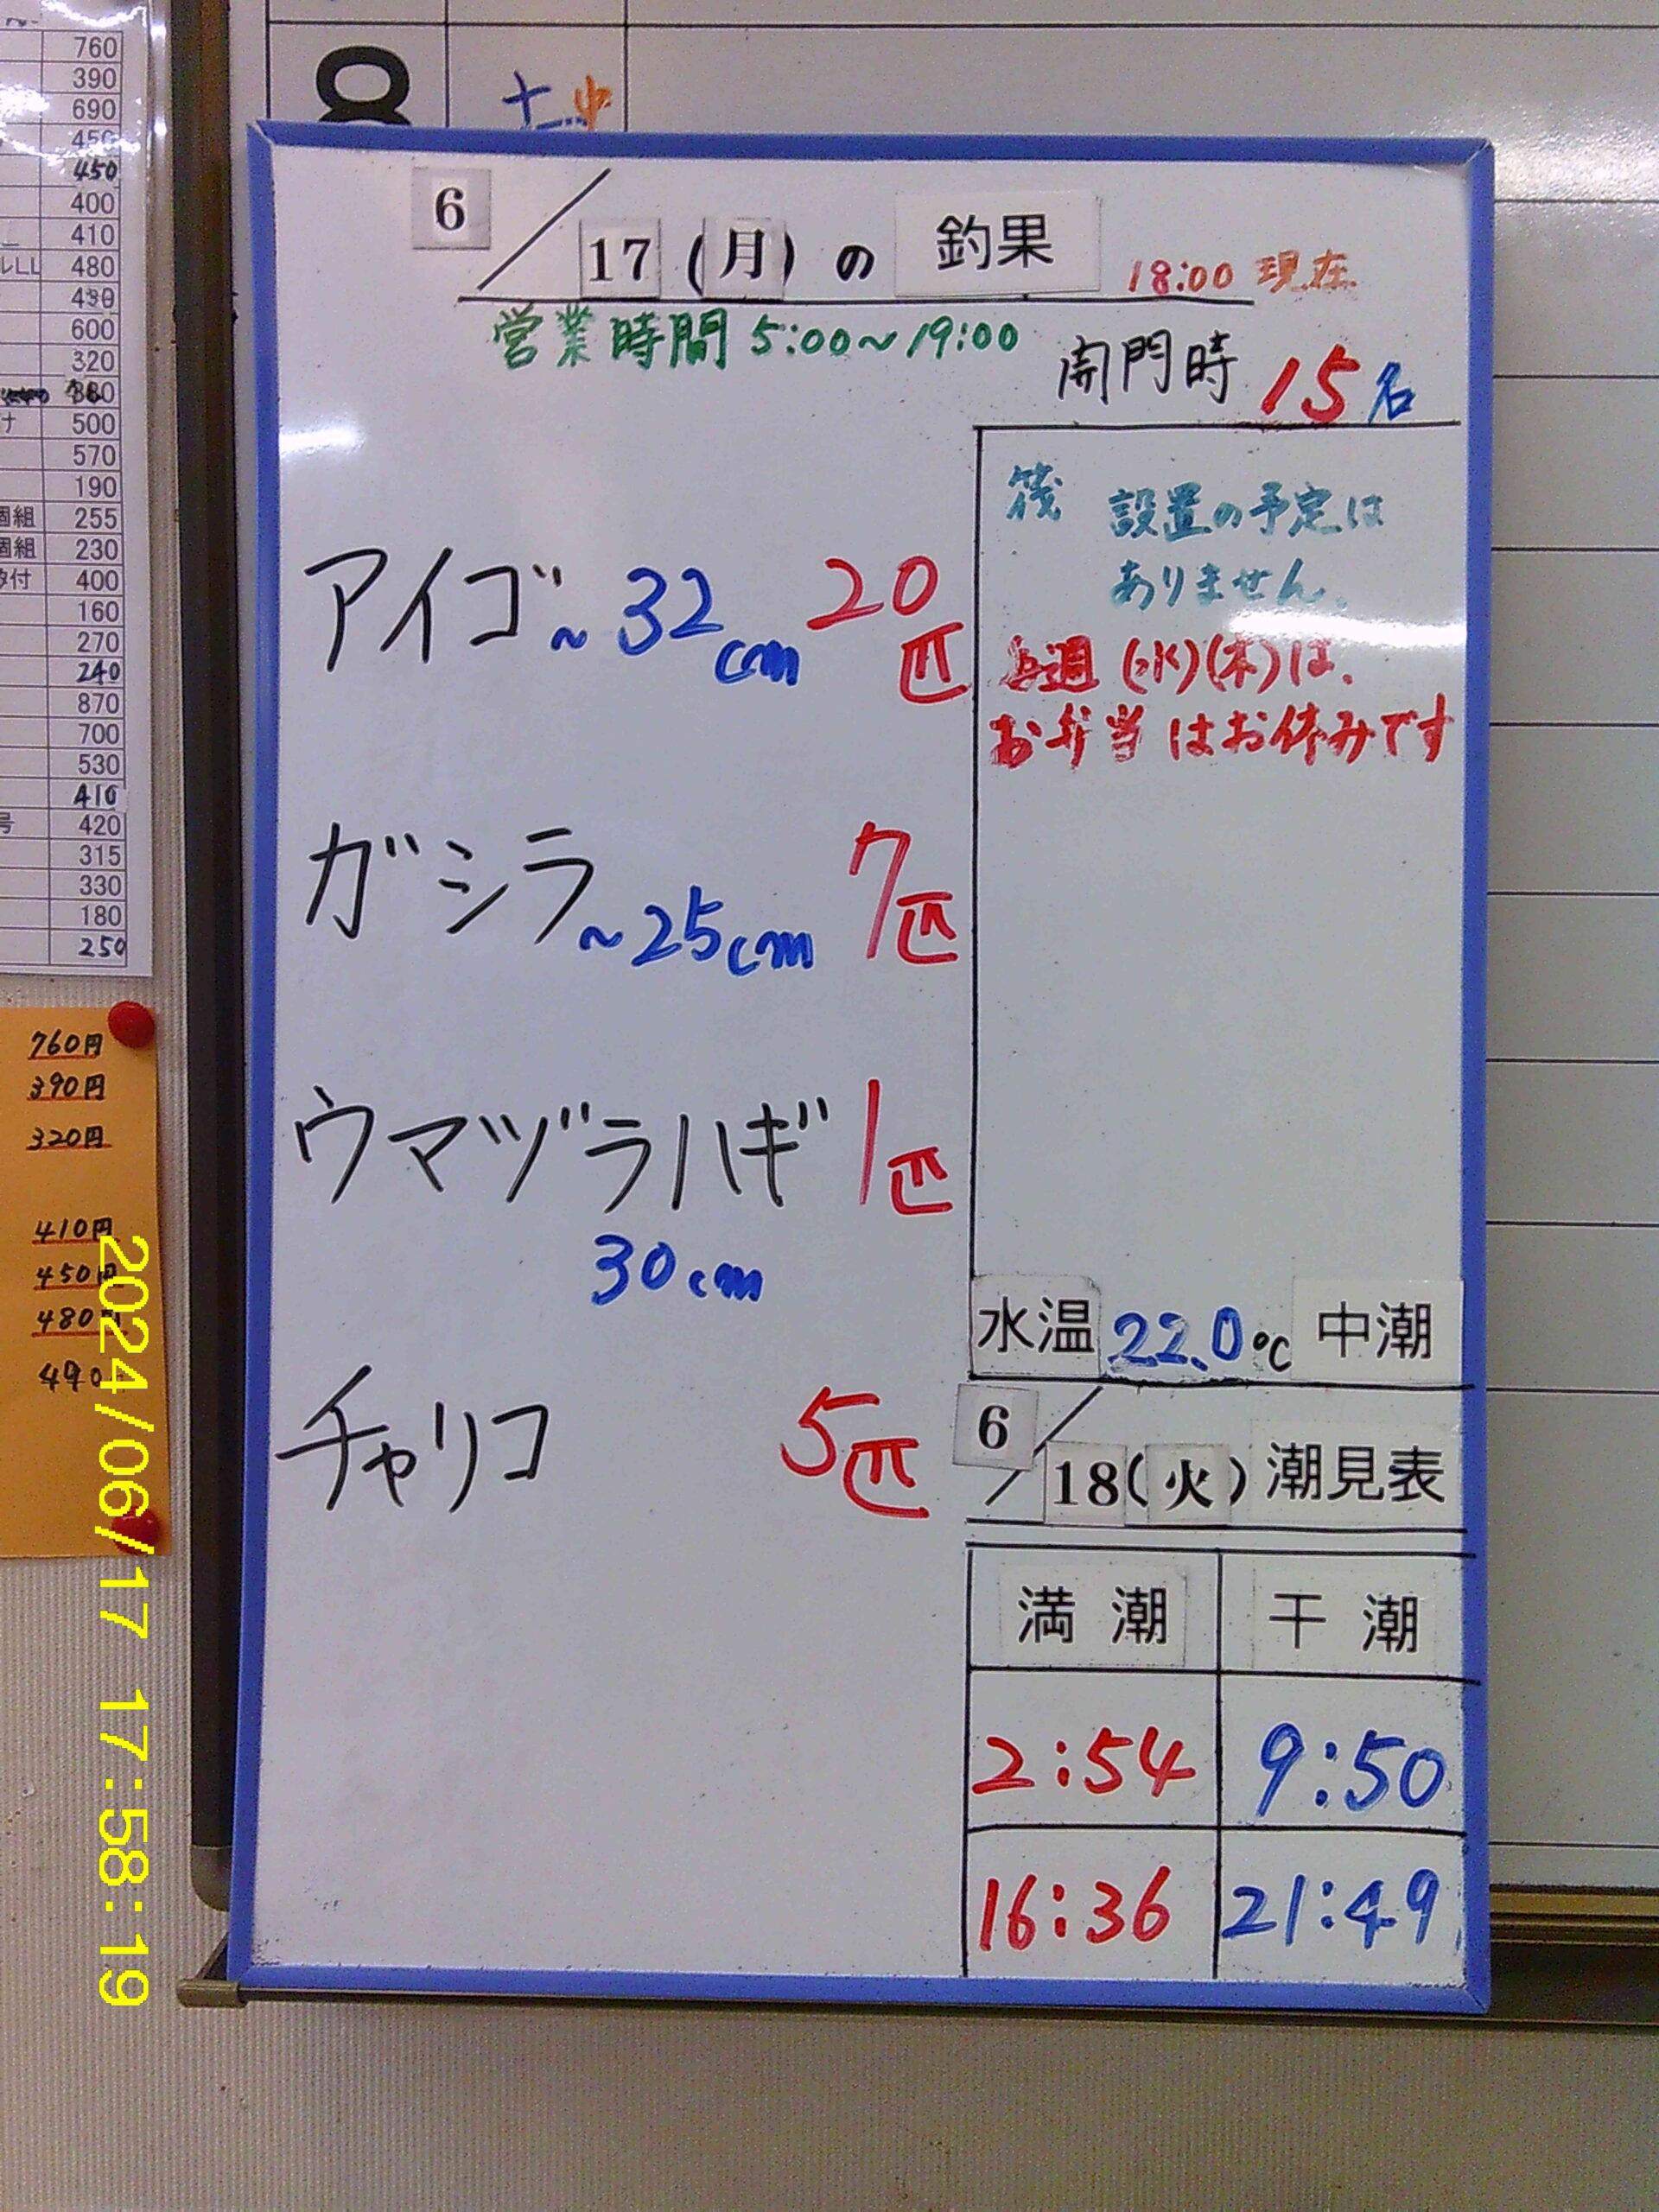 760
390
690
450
450
400
410
ルLL 480
490
600
320
500
570
190
個組 255
個組 230
付 400
160
270
240
870
700
530
410
号 420
315
330
180
250
760円
390円
320円
410円
450円
480円
490
8 土 中
6/17(月)の 釣果 18:00 現在
営業時間 5:00~19:00
開門時 15名
筏 設置の予定は
ありません。
毎週(水)(木)は、
お弁当はお休みです
アイゴ~32cm 20匹
ガシラ~25cm 7匹
ウマヅラハギ 1匹
30cm
チャリコ 5匹
水温 22.0℃ 中潮
6/18(火)潮見表
満潮 干潮
2:54 9:50
16:36 21:49
2024/06/17 17:58:19